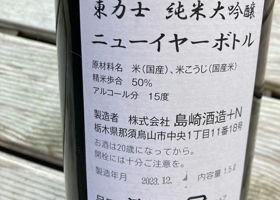 東力士 純米大吟醸
ニューイヤーボトル
原材料名 米(国産)、米こうじ(国産米)
精米歩合 50%
アルコール分 15度
製造者 株式会社 島崎酒造+N
栃木県那須烏山市中央1丁目11番18号
お酒は20歳になってから。
開栓には十分ご注意を。
製造年月 2023.12. 内容量 1.5ℓ